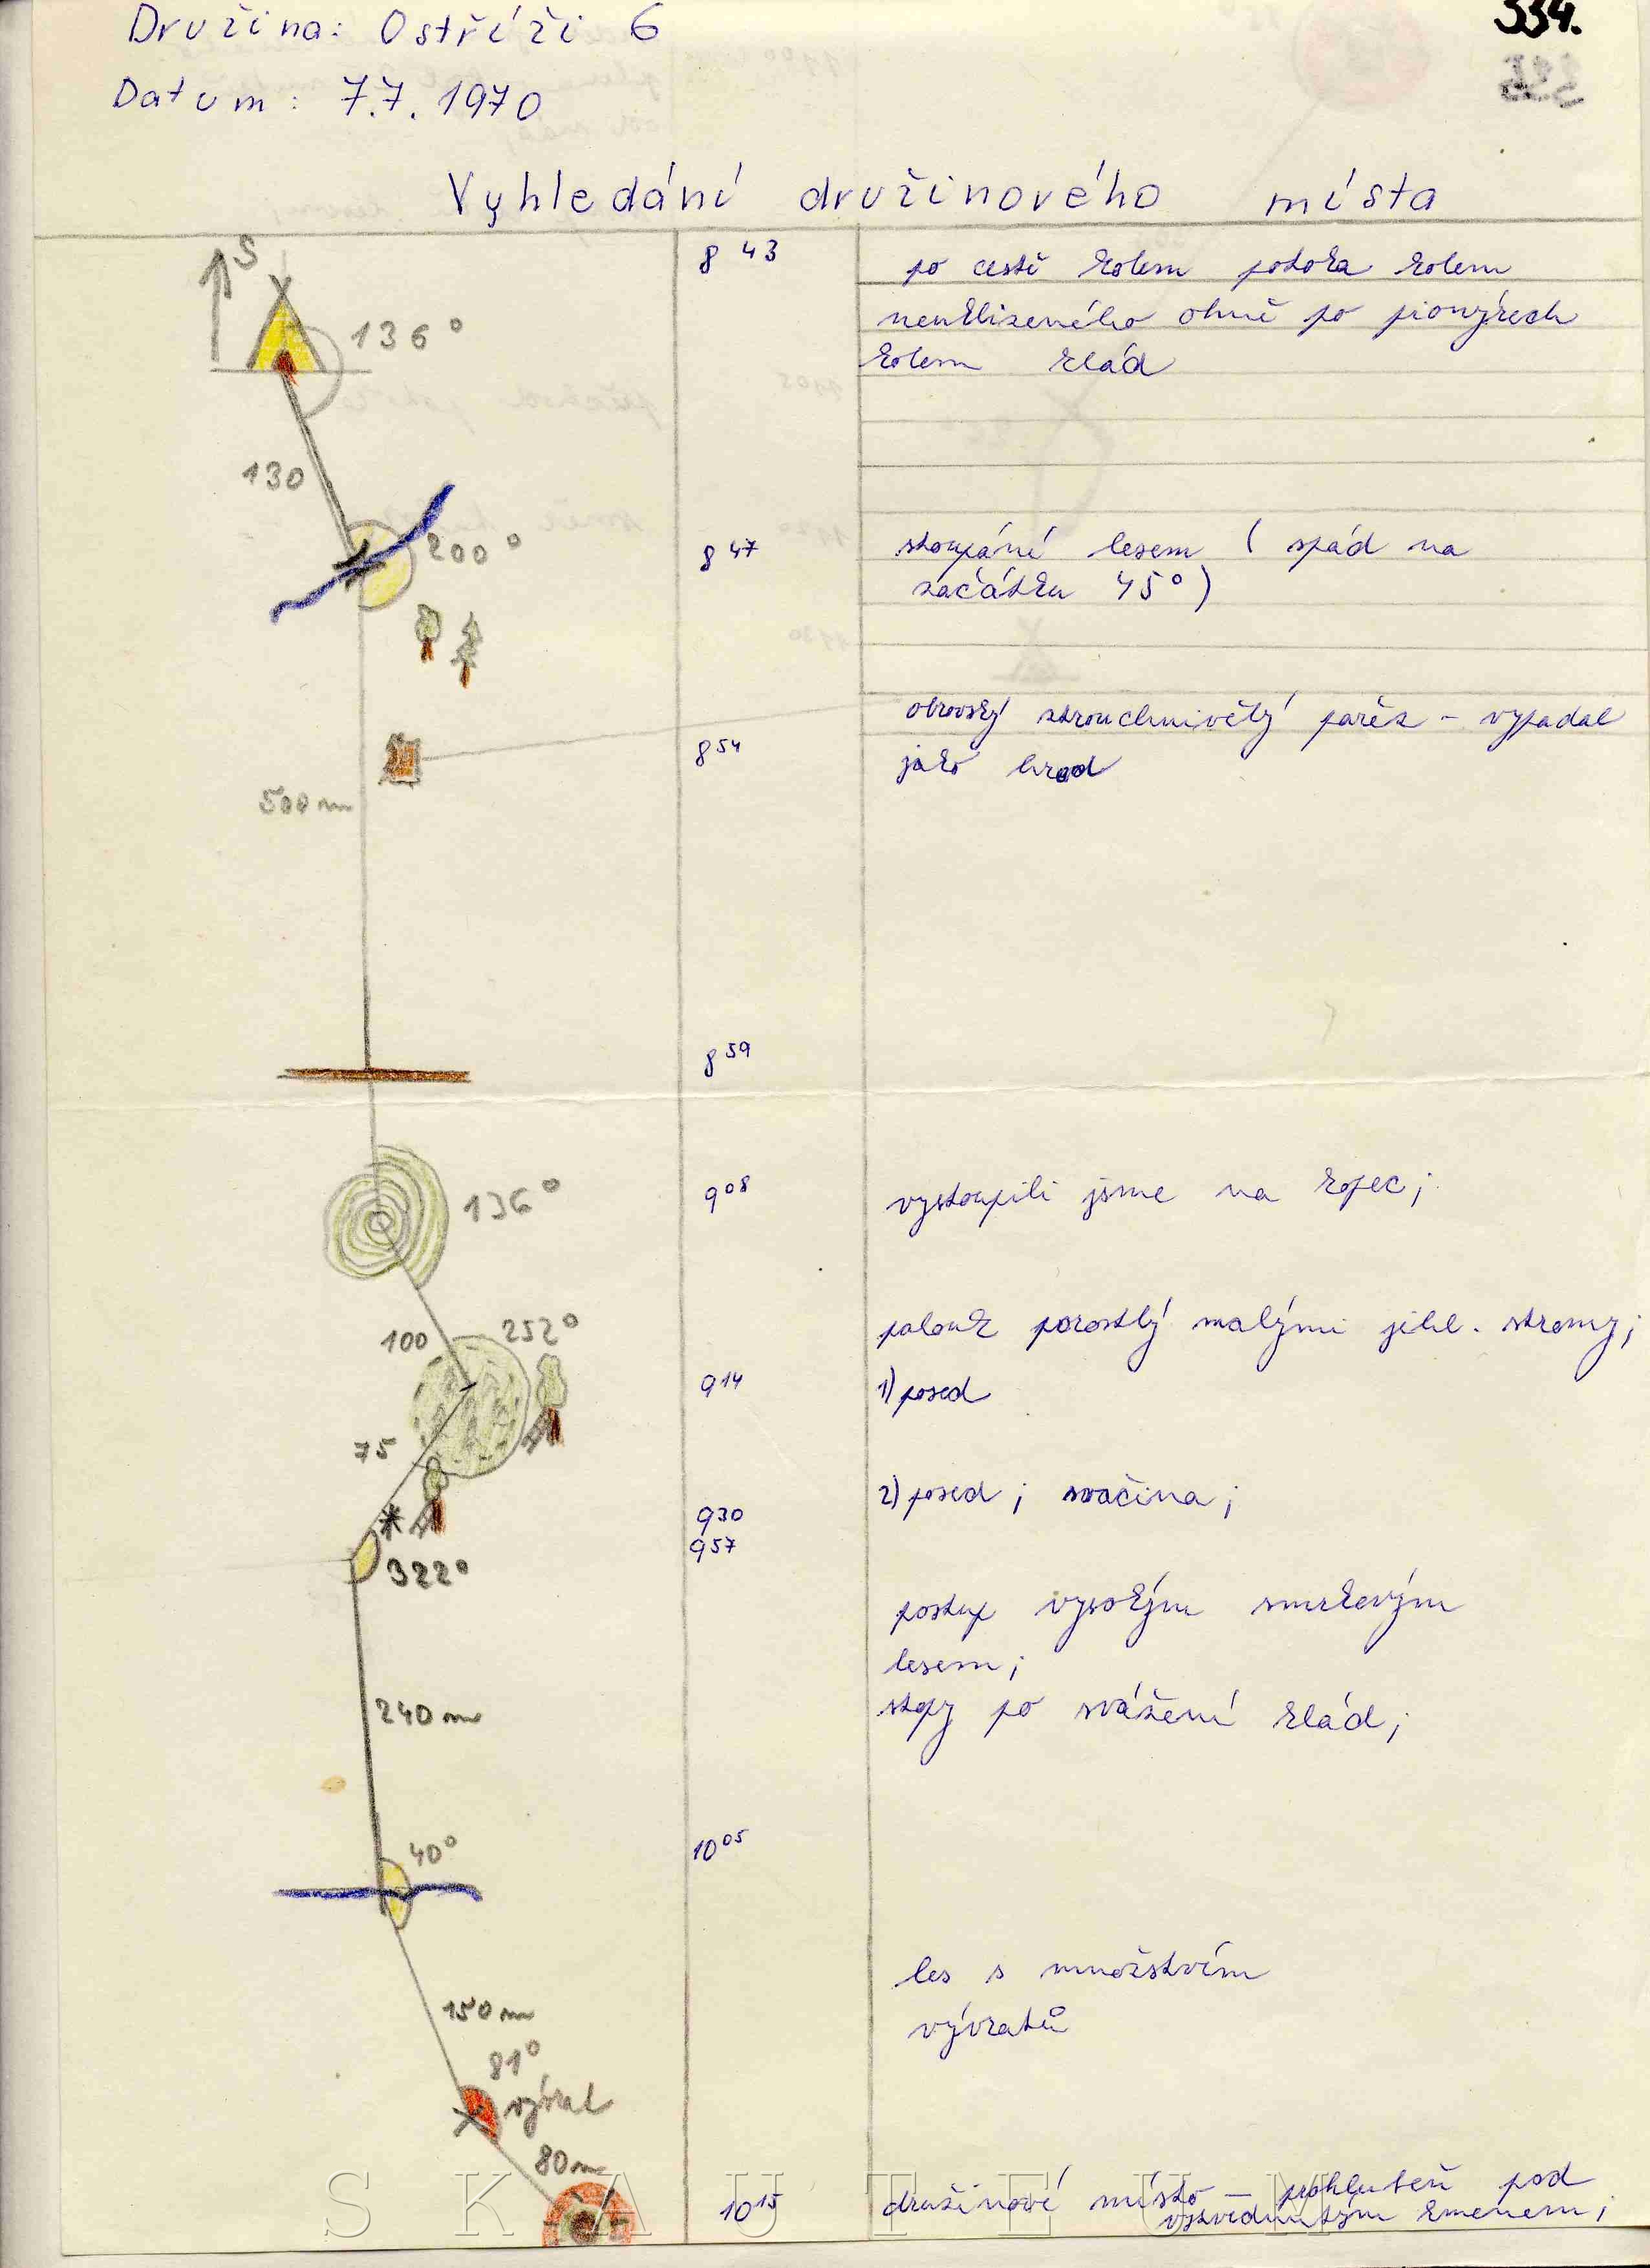 334.
Družina: Ostříži 6
Datum: 7.7. 1970
Vyhledání družinového místa
S
136°
8 43
po cestě kolem potoka kolem
neuklizeného ohně po pionýrech
kolem klád
130
200°
8 47
stoupání lesem ( spád na
začátku 45°)
8 54
obrovský ztrouchnivělý pařez - vypadal
jako hrad
500 m
8 59
136°
9 08
vystoupili jsme na kopec;
100
252°
palouk porostlý malými jehl. stromy;
9 14
1) posed
75
2) posed ; svačina;
9 30
9 57
322°
postup vysokým smrkovým
lesem;
240 m
stopy po svážení klád;
40°
10 05
les s množstvím
vývratů
150 m
81°
vývrat
80m
10 15
družinové místo - prohlubeň pod
vyzvednutým kmenem;
SKAUTEUM